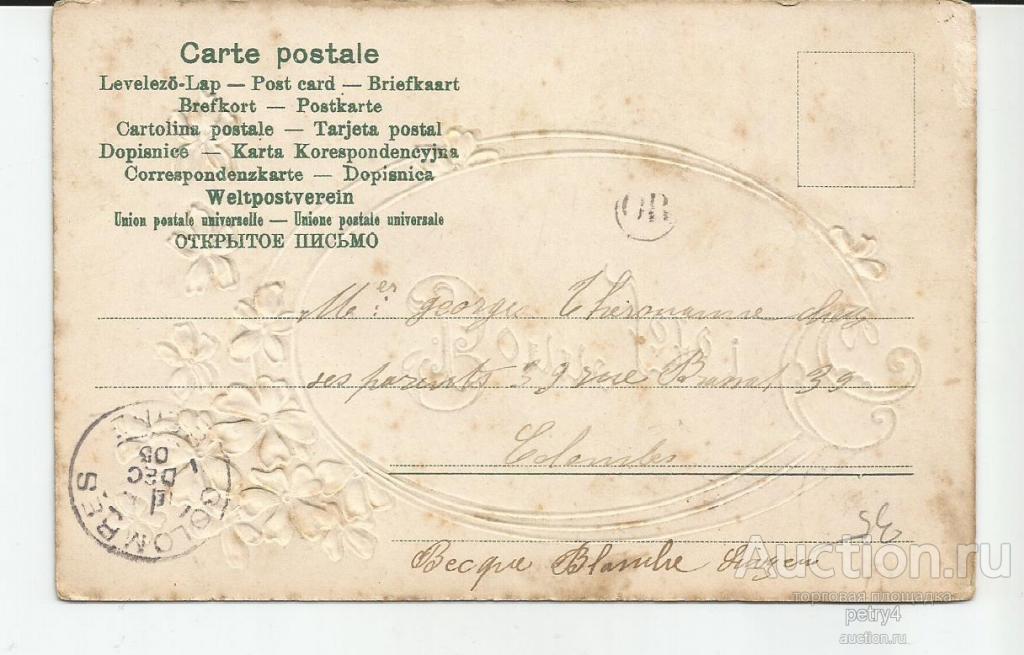 Carte postale
Levelező-Lap — Post card — Briefkaart
Brefkort — Postkarte
Cartolina postale — Tarjeta postal
Dopisnicé — Karta Korespondencyjna
Correspondenzkarte — Dopisnica
Weltpostverein
Union postale universelle — Unione postale universale
ОТКРЫТОЕ ПИСЬМО
OR
georges chez
ses parents 39 rue 39
Colombes
COLOMBES
DEC
05
Becque Blanche
Auction.ru
торговая площадка
petry4
auction.ru